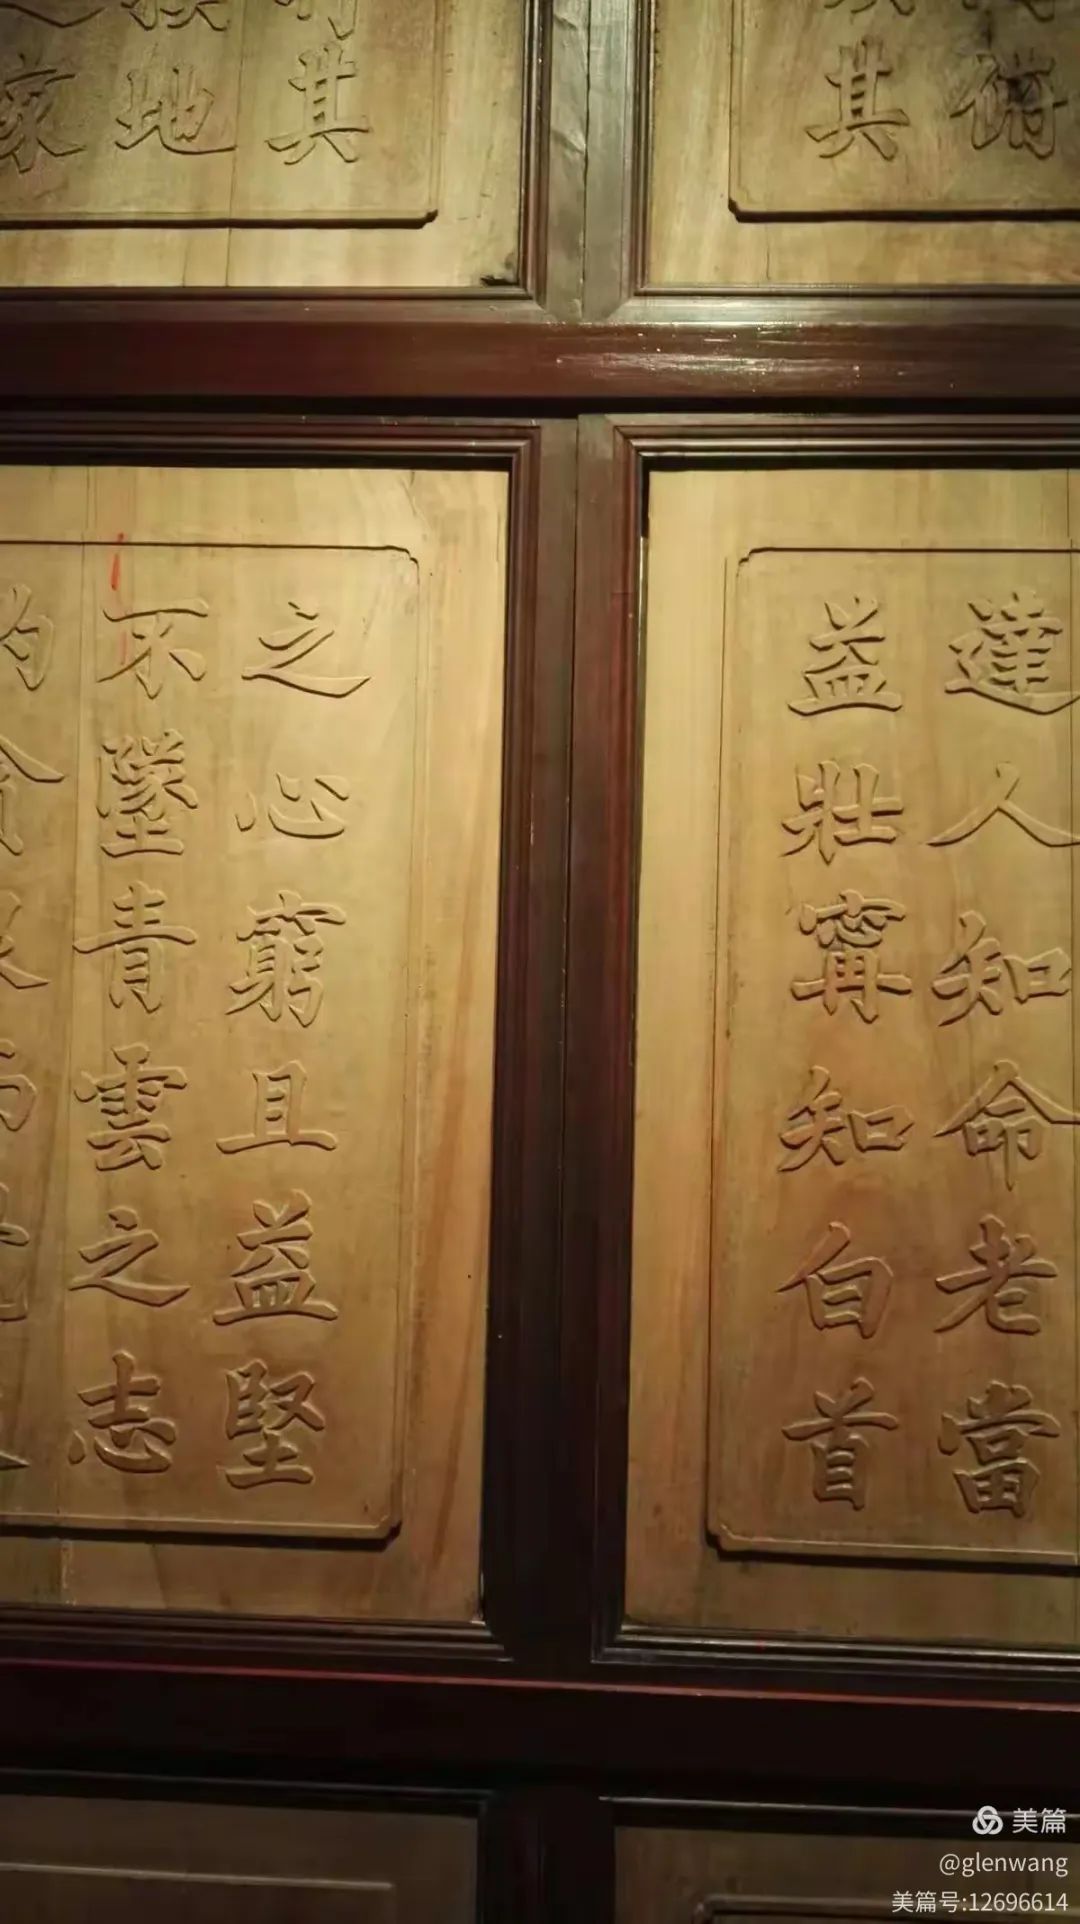 俯
其
其
地
家
達人知命老當
益壯寗知白首
之心窮且益堅
不墜青雲之志
美篇
@glenwang
美篇号:12696614